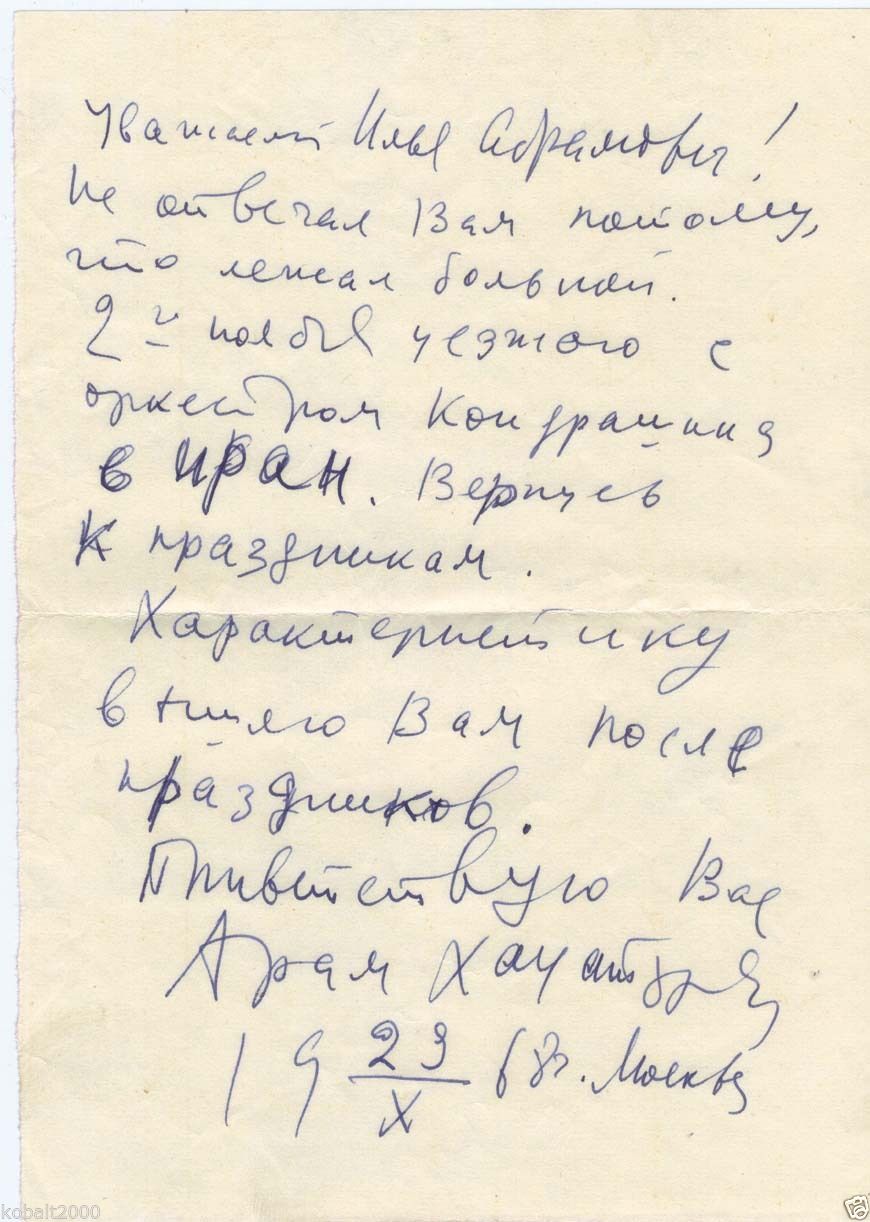 Уважаемый Илья Абрамович!
Не отвечал Вам потому,
что лежал больной.
2го ноября уезжаю с
оркестром Кондрашина
в Иран. Вернусь
к праздникам.
Характеристику
вышлю Вам после
праздников.
Приветствую Вас
Арам Хачатурян
19 23/X 68г. Москва
kobalt2000